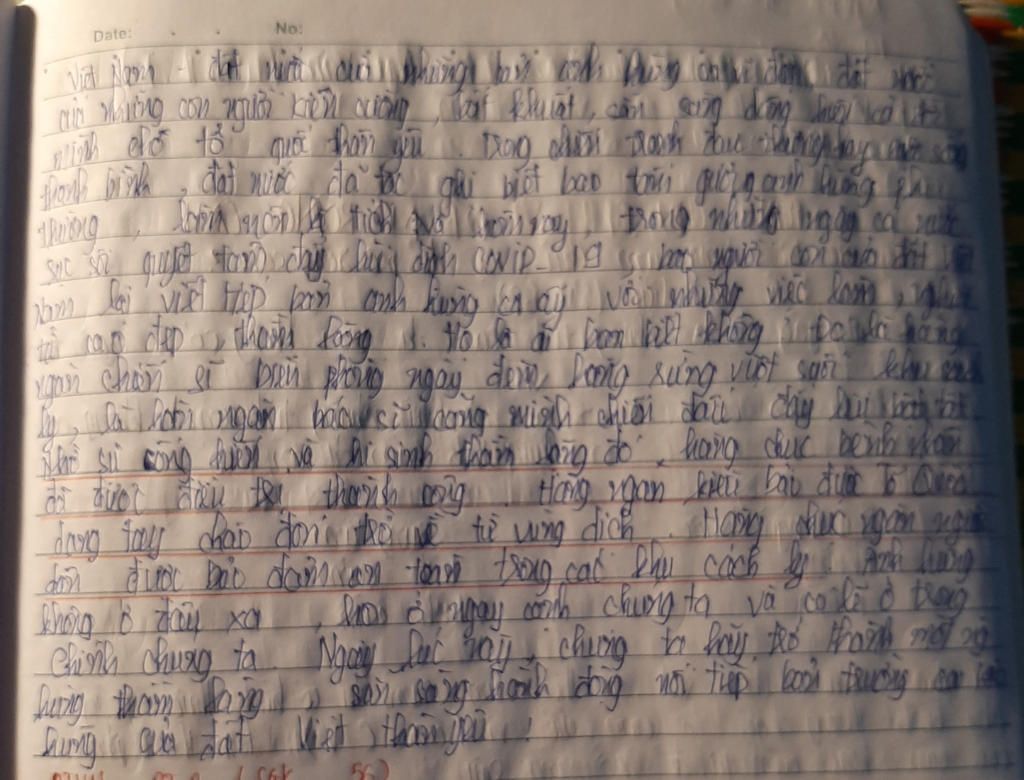 Date: No:
Việt Nam - đất nước của những bản anh hùng ca vĩ đại, đất nước
của những con người kiên cường, bất khuất, sẵn sàng
mình cho tổ quốc thân yêu. Trong chiến tranh hay
thanh bình, đất nước đã tạc ghi biết bao tấm gương anh hùng phi
thường, hôm nay, trong những ngày cả nước
sục sôi quyết tâm đẩy lùi dịch COVID-19, bao người con của đất
Nam lại viết tiếp bản anh hùng ca ấy với những việc làm, nghĩa
cử cao đẹp, thành công. Họ là ai bạn biết không? Đó là hàng
ngàn chiến sĩ biên phòng ngày đêm vượt suối
là hàng ngàn bác sĩ công mình chiến đấu đẩy lùi
Nhờ sự cống hiến và hi sinh thầm lặng đó, hàng chục bệnh nhân
đã được điều trị thành công. Hàng ngàn kiều bào được Tổ Quốc
dang tay chào đón trở về từ vùng dịch. Hàng chục ngàn người
dân được bảo đảm an toàn trong các khu cách ly. Anh hùng
không ở đâu xa, ở ngay cạnh chúng ta và có lẽ ở trong
chính chúng ta. Ngay lúc này, chúng ta hãy trở thành một
hùng thầm lặng, sẵn sàng hành động nối tiếp bản trường ca
hùng của đất Việt thân yêu!
(SGK 56)